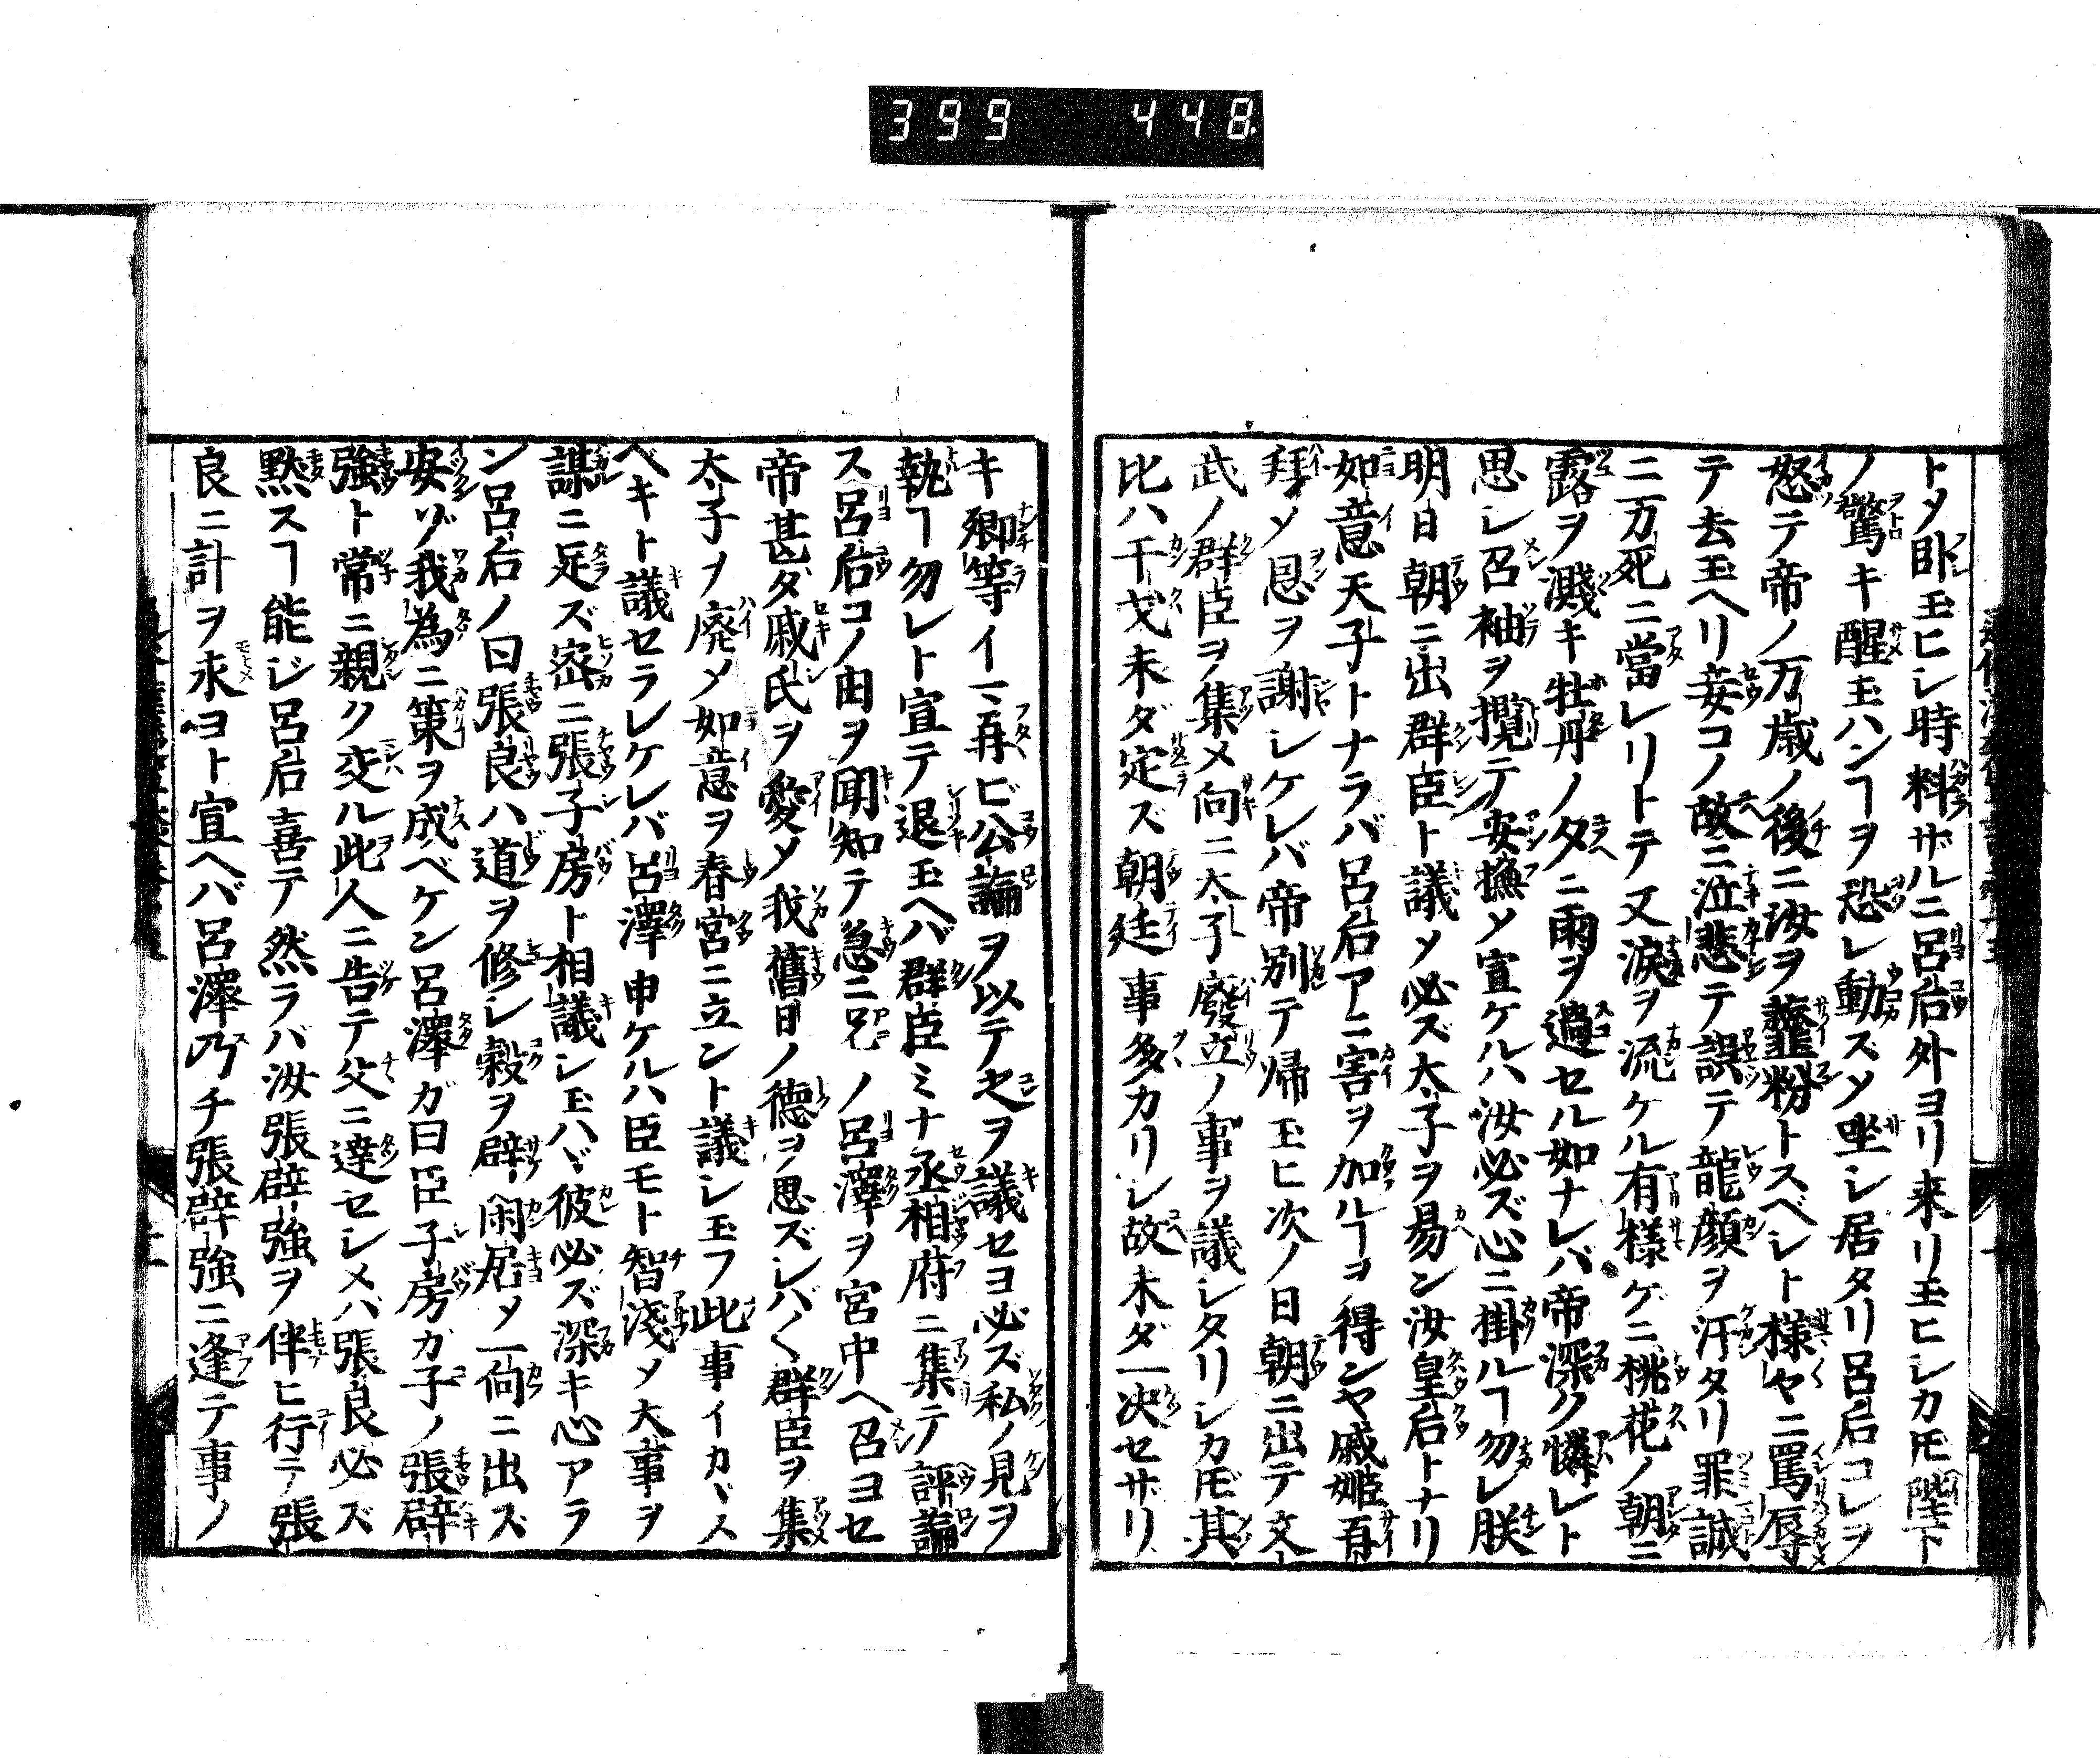 399 448
トメ卧玉ヒシ時料ザルニ呂后外ヨリ来リ玉ヒシカ𪜈陛下
ノ驚キ醒玉ハンヿヲ恐レ動スメ坐シ居タリ呂后コレヲ
怒テ帝ノ万歳ノ後ニ汝ヲ虀粉トスベシト様〻ニ罵辱
テ去玉ヘリ妾コノ故ニ泣悲テ誤テ龍顔ヲ汗タリ罪誠
ニ万死ニ當レリトテ又涙ヲ流ケル有様ゲニ桃花ノ朝ニ
露ヲ濺キ牡丹ノ夕ニ雨ヲ過セル如ナレバ帝深ク憐レト
思シ召袖ヲ攬テ安撫メ宣ケルハ汝必ズ心ニ掛ルヿ勿レ朕
明日朝ニ出群臣ト議メ必ズ太子ヲ易ン汝皇后トナリ
如意天子トナラバ呂后アニ害ヲ加ルヿヲ得ンヤ戚姫再
拜メ恩ヲ謝シケレバ帝別テ帰玉ヒ次ノ日朝ニ出テ文
武ノ群臣ヲ集メ向ニ太子廢立ノ事ヲ議シタリシカ𪜈其
比ハ干戈未ダ定ズ朝廷事多カリシ故未ダ一决セザリ
キ卿等イマ再ビ公論ヲ以テ之ヲ議セヨ必ズ私ノ見ヲ
執ヿ勿レト宣テ退玉ヘバ群臣ミナ丞相府ニ集テ評論
ス呂后コノ由ヲ聞知テ急ニ兄ノ呂澤ヲ宮中ヘ召ヨセ
帝甚ダ戚氏ヲ愛メ我舊日ノ德ヲ思ズシバ〱群臣ヲ集
太子ヲ廃メ如意ヲ春宮ニ立ント議シ玉フ此事イカヽス
ベキト議セラレケレバ呂澤申ケルハ臣モト智淺メ大事ヲ
謀ニ足ズ宻ニ張子房ト相議シ玉ハヾ彼必ズ深キ心アラ
ン呂后ノ曰張良ハ道ヲ修シ穀ヲ辟ケ閑居メ一向ニ出ズ
安ゾ我為ニ策ヲ成ベケン呂澤ガ曰臣子房ガ子ノ張辟
強ト常ニ親ク交ル此人ニ告テ父ニ達セシメバ張良必ズ
黙スヿ能ジ呂后喜テ然ラバ汝張辟強ヲ伴ヒ行テ張
良ニ計ヲ求ヨト宣ヘバ呂澤乃チ張辟強ニ逢テ事ノ